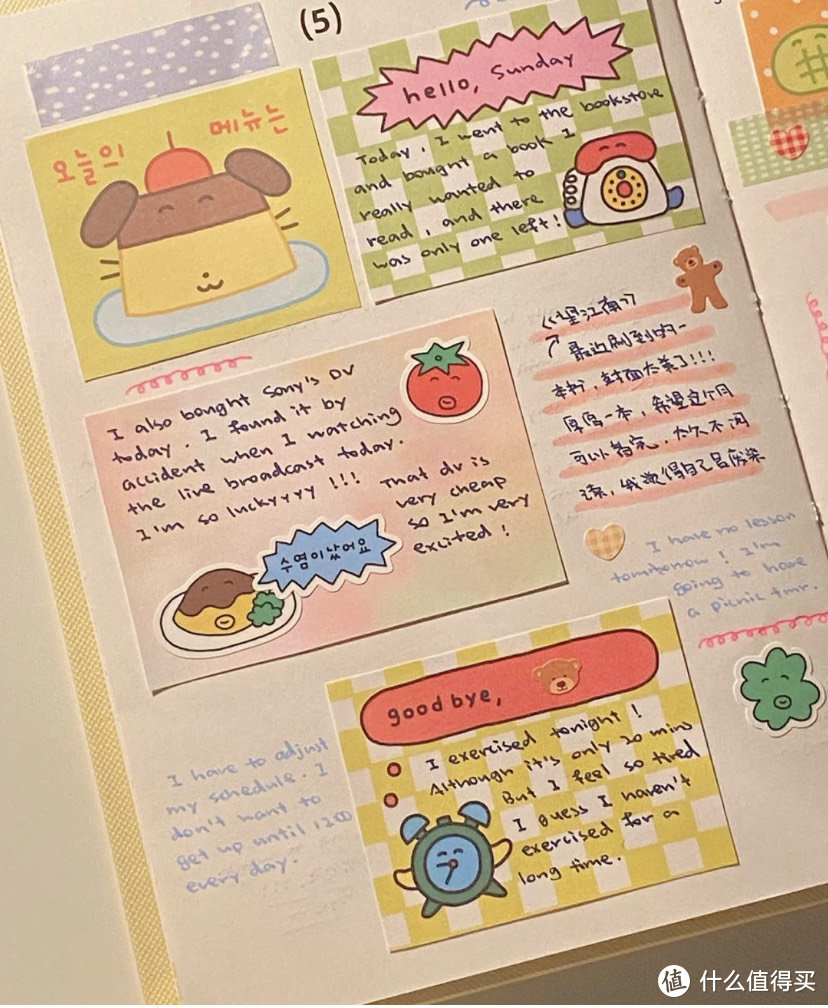 (5)
오늘의 메뉴는
hello, Sunday
Today, I went to the bookstore
and bought a book I
really wanted to
read, and there
was only one left!
I also bought Sony's DV
today. I found it by
accident when I watching
the live broadcast today.
I'm so luckyyyy !!!
That dv is
very cheap
so I'm very
excited!
수염이 났어요
《望江南》
↗ 最近刷到的一
本书，封面太美了!!!
一本，希望这个月
可以
，我觉得自己
I have no lesson
tomorrow! I'm
going to have
a picnic tmr.
good bye,
I exercised tonight!
Although it's only 20 mins
But I feel so tired
I guess I haven't
exercised for a
long time.
I have to adjust
my schedule. I
don't want to
get up until 1200
every day.
值 什么值得买